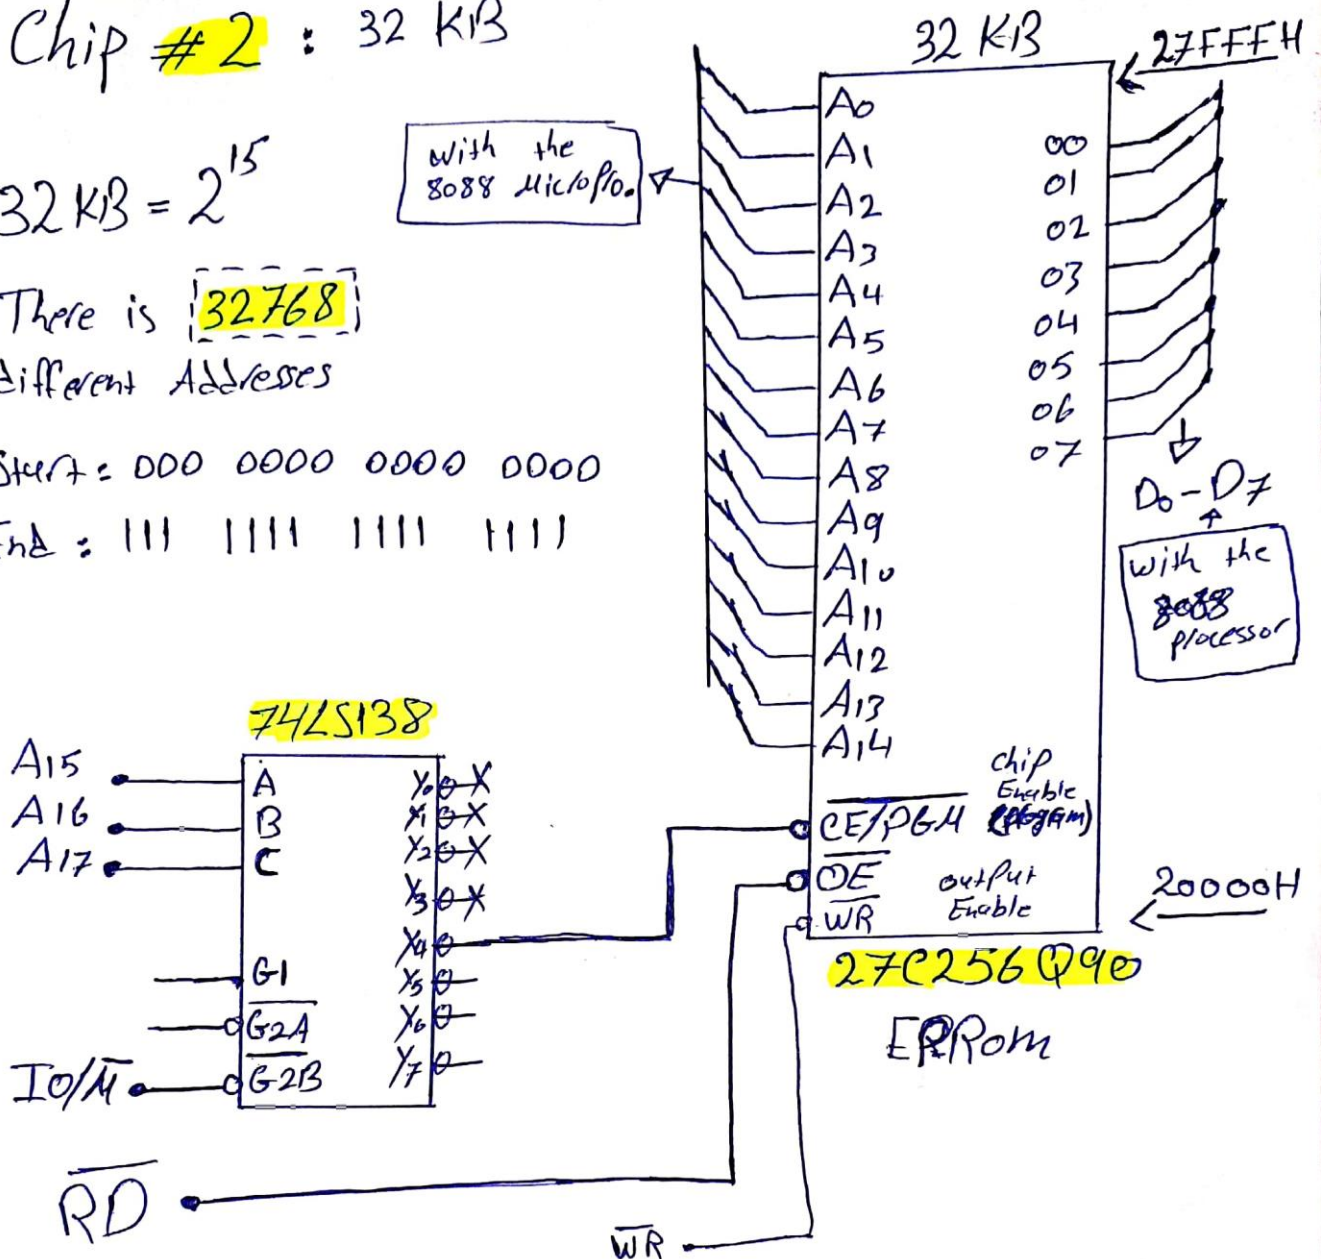 Chip #2 : 32 KB
32 KB = 2^15
There is 32768
different Addresses
Start: 000 0000 0000 0000
End : 111 1111 1111 1111
with the
8088 MicroPro.
32 KB
27FFFH
A0
A1
A2
A3
A4
A5
A6
A7
A8
A9
A10
A11
A12
A13
A14
00
01
02
03
04
05
06
07
D0-D7
with the
8088
processor
Chip
Enable
(program)
C̅E̅/̅P̅G̅M̅
O̅E̅
output
Enable
W̅R̅
20000H
27C256Q90
EPROM
74LS138
A15
A16
A17
A
B
C
G1
G̅2̅A̅
G̅2̅B̅
IO/M̅
Y0 X
Y1 X
Y2 X
Y3 X
Y4
Y5
Y6
Y7
R̅D̅
W̅R̅